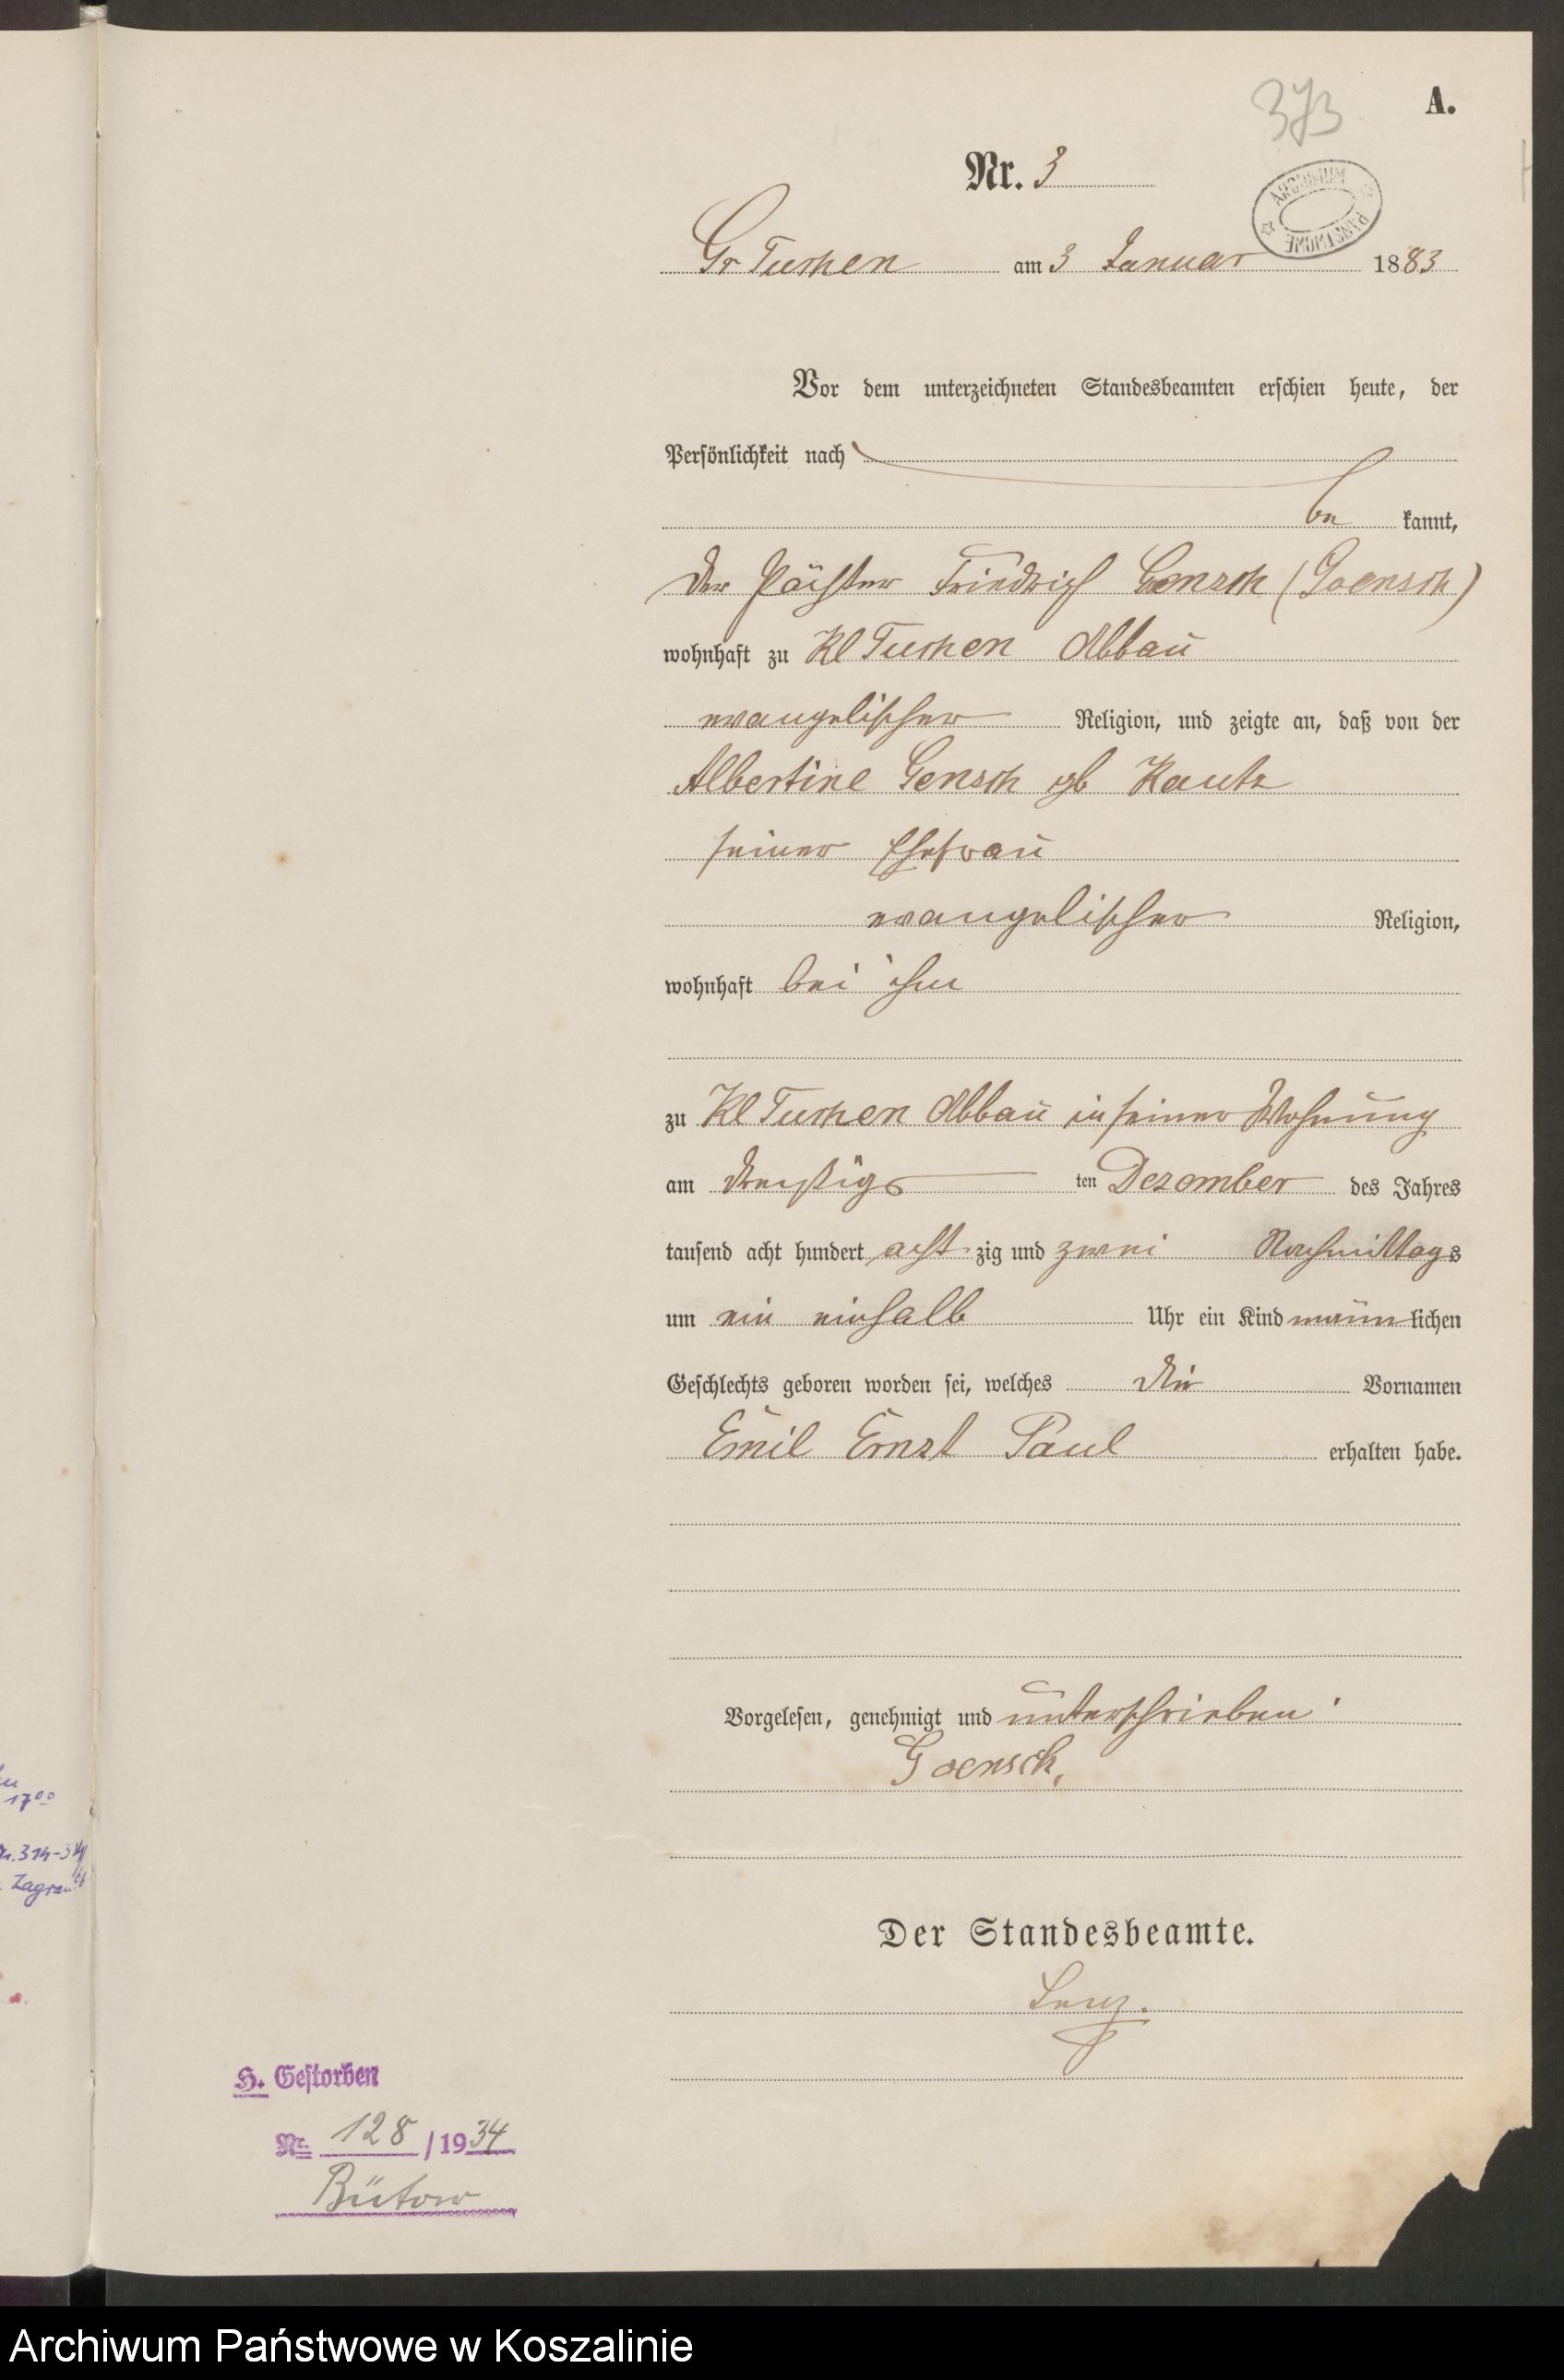 373
A.
Nr. 3
ARCHIWUM PAŃSTWOWE
Gr Tuchen am 3 Januar 1883
Vor dem unterzeichneten Standesbeamten erschien heute, der
Persönlichkeit nach
be kannt,
der Pächter Friedrich Gensch (Goensch)
wohnhaft zu Kl Tuchen Abbau
evangelischer Religion, und zeigte an, daß von der
Albertine Gensch gb Kautz
seiner Ehefrau
evangelischer Religion,
wohnhaft bei ihm
zu Kl Tuchen Abbau in seiner Wohnung
am dreißigs ten Dezember des Jahres
tausend acht hundert acht zig und zwei Nachmittags
um ein einhalb Uhr ein Kind männ lichen
Geschlechts geboren worden sei, welches die Vornamen
Emil Ernst Paul erhalten habe.
Vorgelesen, genehmigt und unterschrieben
Goensch,
Der Standesbeamte.
Lenz.
H. Gestorben
Nr. 128 / 1934
Bütow
1700
314-
Archiwum Państwowe w Koszalinie